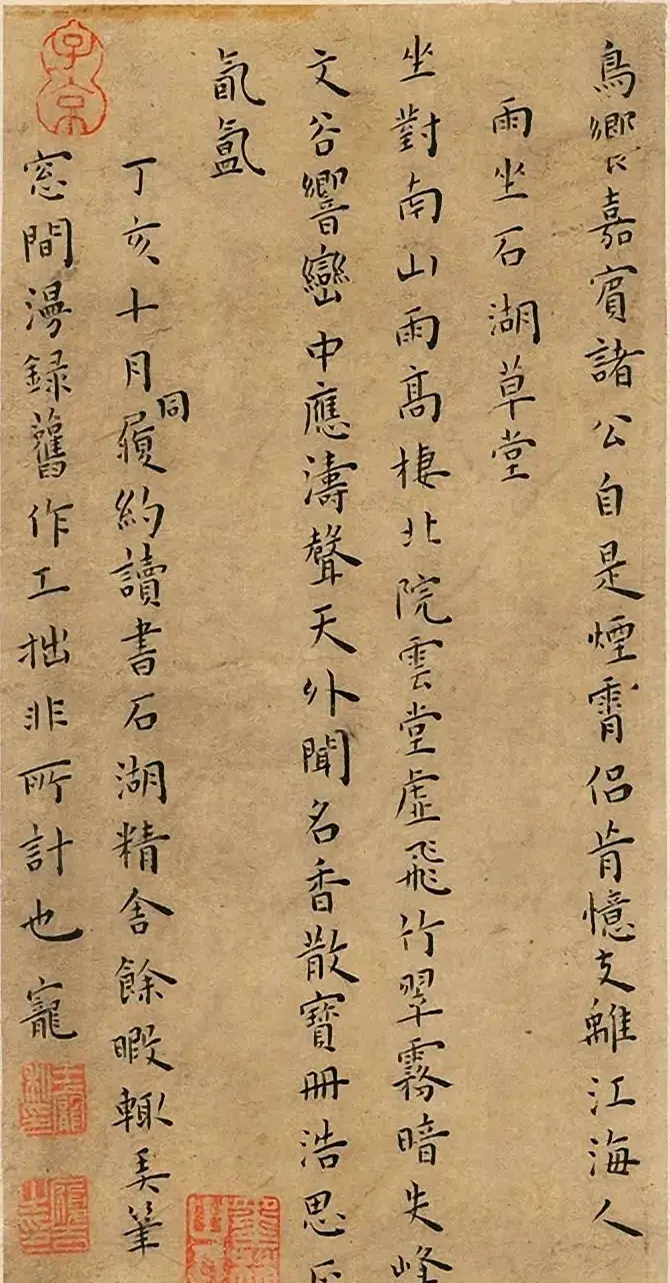 鳥嘉賓諸公自是煙霄侶肯憶支離江海人
雨坐石湖草堂
坐對南山雨高棲北院雲堂虛飛竹翠霧暗失峰
文谷響巒中應濤聲天外聞名香散寶冊浩思
氤氳
丁亥十月同履約讀書石湖精舍餘暇輒弄筆
窓間漫録舊作工拙非所計也寵
子京